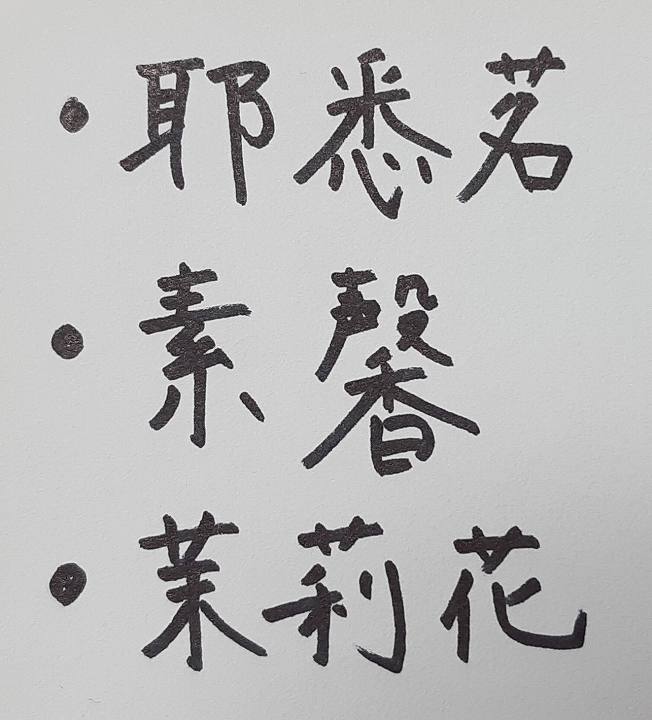 • 耶悉茗
• 素馨
• 茉莉花